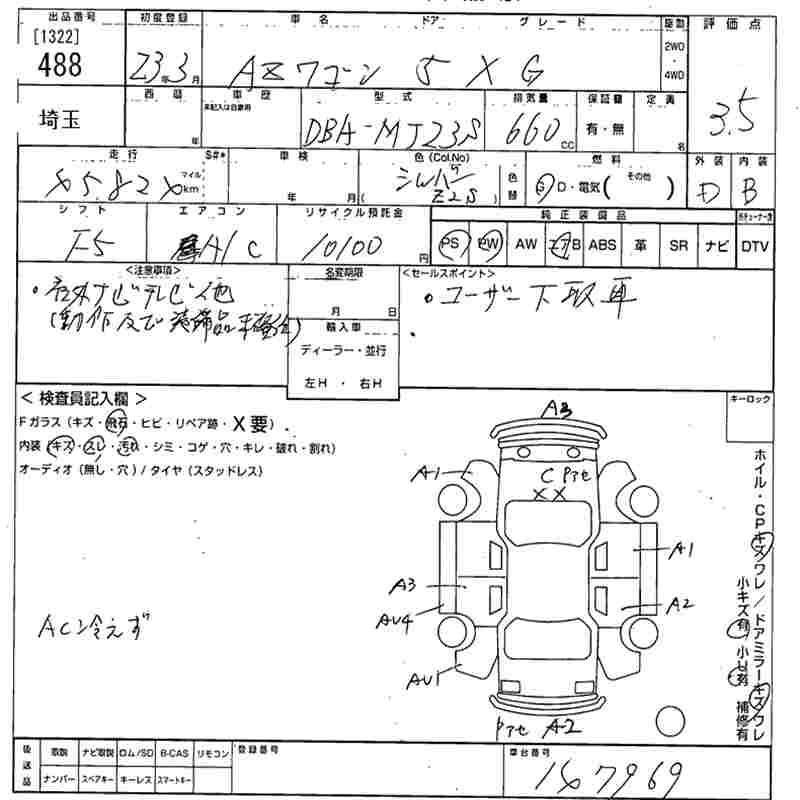 出品番号 初度登録 車名 ドア グレード 駆動 評価点
[1322] 488 23年3月 AZワゴン 5 X G 2WD・4WD 3.5
埼玉 西暦 年 車歴 未記入は自家用 型式 DBA-MJ23S 排気量 660cc 保証書 有・無 定員 名
走行 マイル km S#* 車検 年 月 色(Col.No) シルバー Z2S 色替 燃料 G D・電気( その他 ) 外装 D 内装 B
シフト F5 エアコン A/C リサイクル預託金 10100円 純正装備品 PS PW AW エアB ABS 革 SR ナビ DTV
<注意事項> 名変期限 月 日 <セールスポイント>
・社外ナビテレビ他 ・ユーザー下取車
(動作及び装備品未確認)
輸入車
ディーラー・並行
左H・右H
<検査員記入欄> キーロック
Fガラス(キズ・飛石・ヒビ・リペア跡・X要)
内装(キズ・スレ・汚れ・シミ・コゲ・穴・キレ・破れ・割れ)
オーディオ(無し・穴)/タイヤ(スタッドレス)
A3
A1 C Pアセ
X X
A1
A3 A2
AU4
ACン冷えず
AU1
Pアセ A2
ホイル・CPキズワレ/ドアミラーキズワレ
小キズ有 小U有 補修有
後送品 取説 ナビ取説 ロム/SD B-CAS リモコン 登録番号 車台番号
ナンバー スペアキー キーレス スマートキー 167969